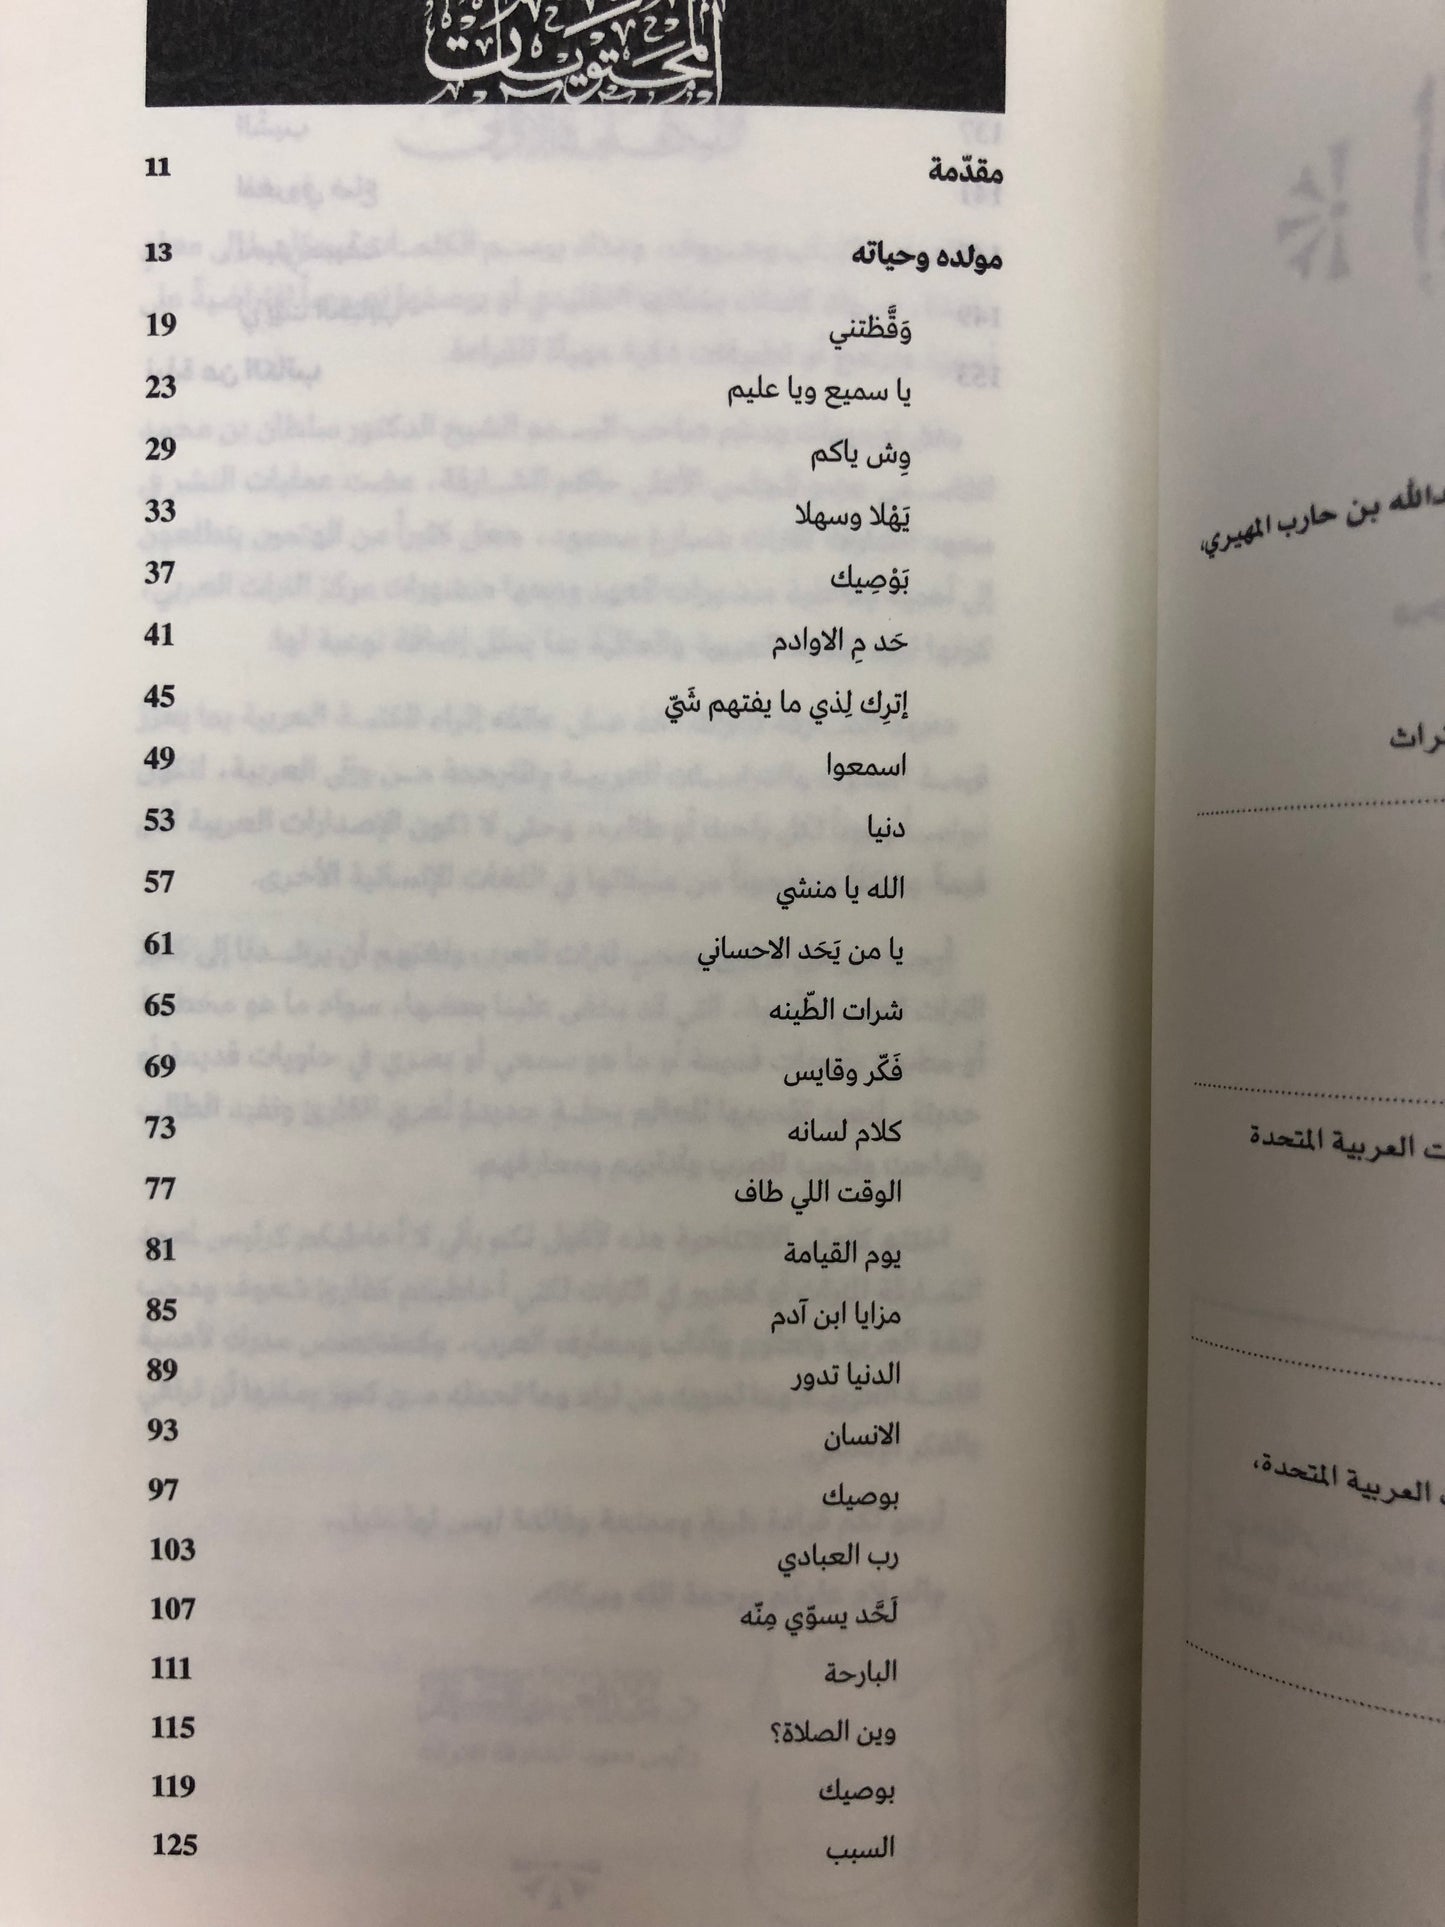 المحتويات
مقدّمة 11
مولده وحياته 13
وَقَّظتني 19
يا سميع ويا عليم 23
وِش ياكم 29
يَهْلا وسهلا 33
بَوْصِيك 37
حَد مِ الاوادم 41
إترِك لِذي ما يفتهم شَيّ 45
اسمعوا 49
دنيا 53
الله يا منشي 57
يا من يَحَد الاحساني 61
شرات الطّينه 65
فَكّر وقايس 69
كلام لسانه 73
الوقت اللي طاف 77
يوم القيامة 81
مزايا ابن آدم 85
الدنيا تدور 89
الانسان 93
بوصيك 97
رب العبادي 103
لَحَّد يسوّي مِنّه 107
البارحة 111
وين الصلاة؟ 115
بوصيك 119
السبب 125
بن حارب المهيري،
العربية المتحدة
العربية المتحدة،